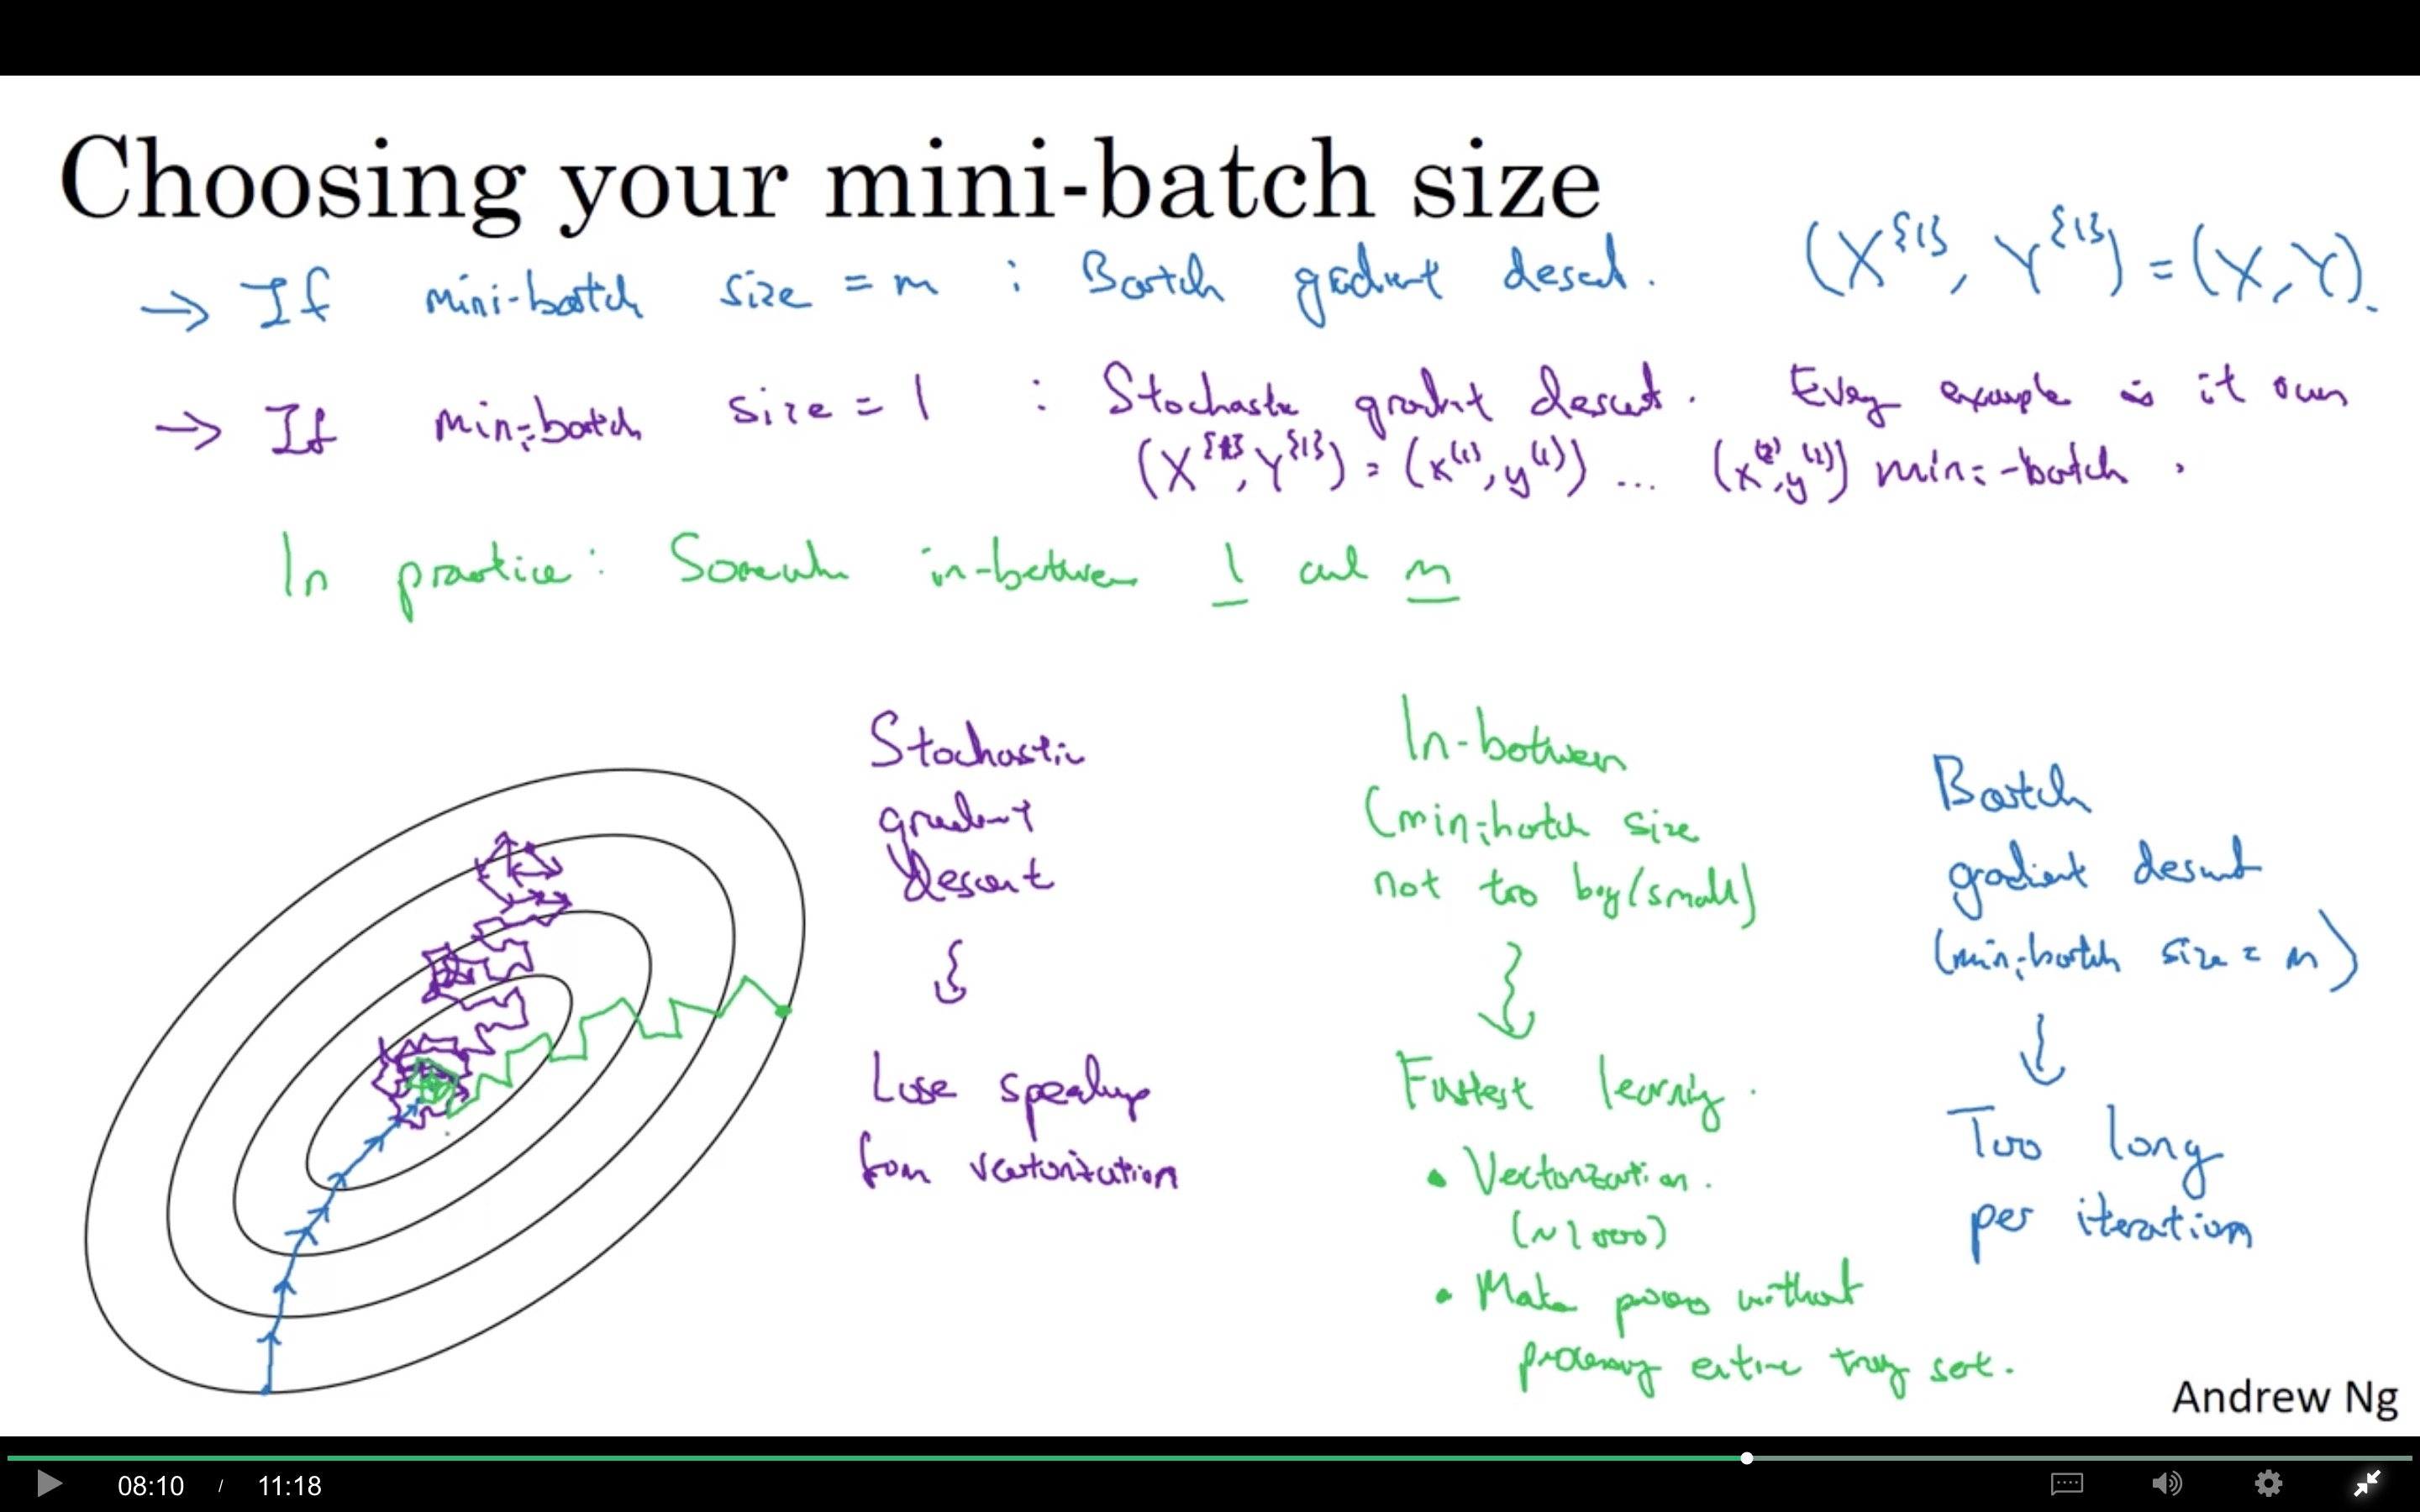 Choosing your mini-batch size
→ If mini-batch size = m : Batch gradient descent. (X^{1}, Y^{1}) = (X, Y).
→ If mini-batch size = 1 : Stochastic gradient descent. Every example is it own
(X^{1}, Y^{1}) = (x^(1), y^(1)) ... (x^(2), y^(2)) mini-batch.
In practice: Somewhere in-between 1 and m
Stochastic
gradient
descent
Lose speedup
from vectorization
In-between
(mini-batch size
not too big/small)
Fastest learning.
• Vectorization.
(~1000)
• Make progress without
processing entire training set.
Batch
gradient descent
(mini-batch size = m)
Too long
per iteration
Andrew Ng
08:10 / 11:18